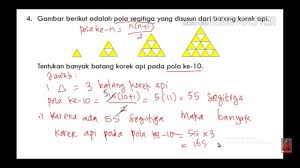 4. Gambar berikut adalah pola segitiga yang disusun dari batang korek api.
pola ke-n = n(n+1)
2
Tentukan banyak batang korek api pada pola ke-10.
Jawab:
1 △ = 3 batang korek api
pola ke-10 = 5 10(10+1) = 5(11) = 55 segitiga
2
∴ Karena ada 55 segitiga maka banyak
korek api pada pola ke-10 = 55 x 3
= 165